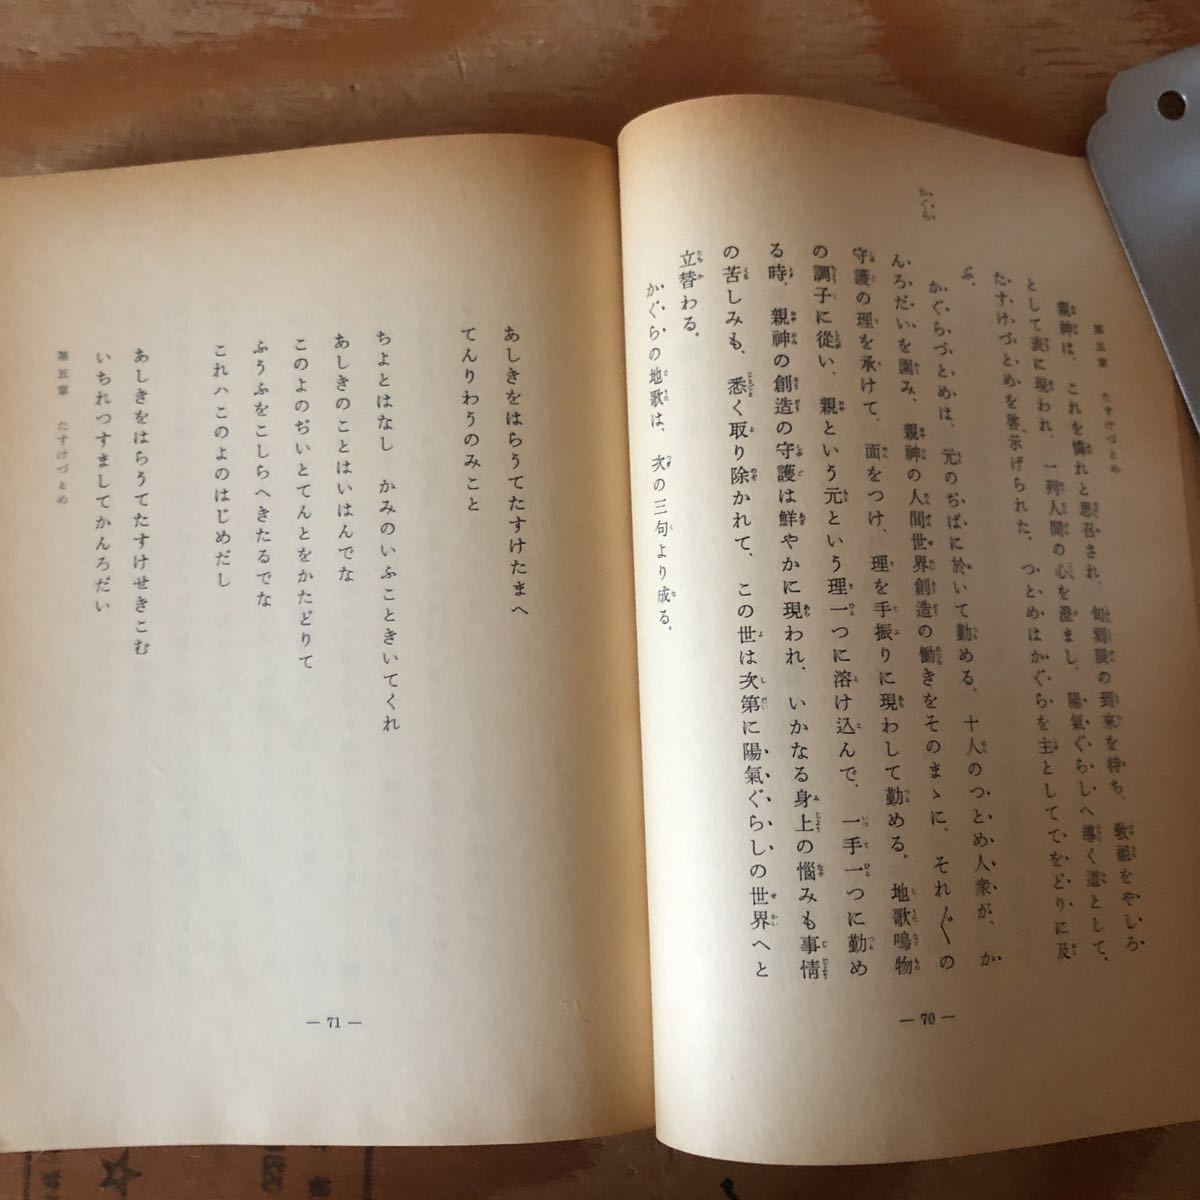 第五章 たすけづとめ
親神は、これを憐れと思召され、旬刻限の到来を待ち、教祖をやしろ
として表に現われ、一列人間の心を澄まし、陽氣ぐらしへ導く道として、
たすけづとめを啓示げられた。つとめはかぐらを主としててをどりに及
ぶ。
かぐら
かぐらづとめは、元のぢばに於いて勤める。十人のつとめ人衆が、か
んろだいを圍み、親神の人間世界創造の働きをそのまゝに、それ〲の
守護の理を承けて、面をつけ、理を手振りに現わして勤める。地歌鳴物
の調子に従い、親という元という理一つに溶け込んで、一手一つに勤め
る時、親神の創造の守護は鮮やかに現われ、いかなる身上の悩みも事情
の苦しみも、悉く取り除かれて、この世は次第に陽氣ぐらしの世界へと
立替わる。
かぐらの地歌は、次の三句より成る。
— 70 —
あしきをはらうてたすけたまへ
てんりわうのみこと
ちよとはなし かみのいふこときいてくれ
あしきのことはいはんでな
このよのぢいとてんとをかたどりて
ふうふをこしらへきたるでな
これハこのよのはじめだし
あしきをはらうてたすけせきこむ
いちれつすましてかんろだい
第五章 たすけづとめ
— 71 —